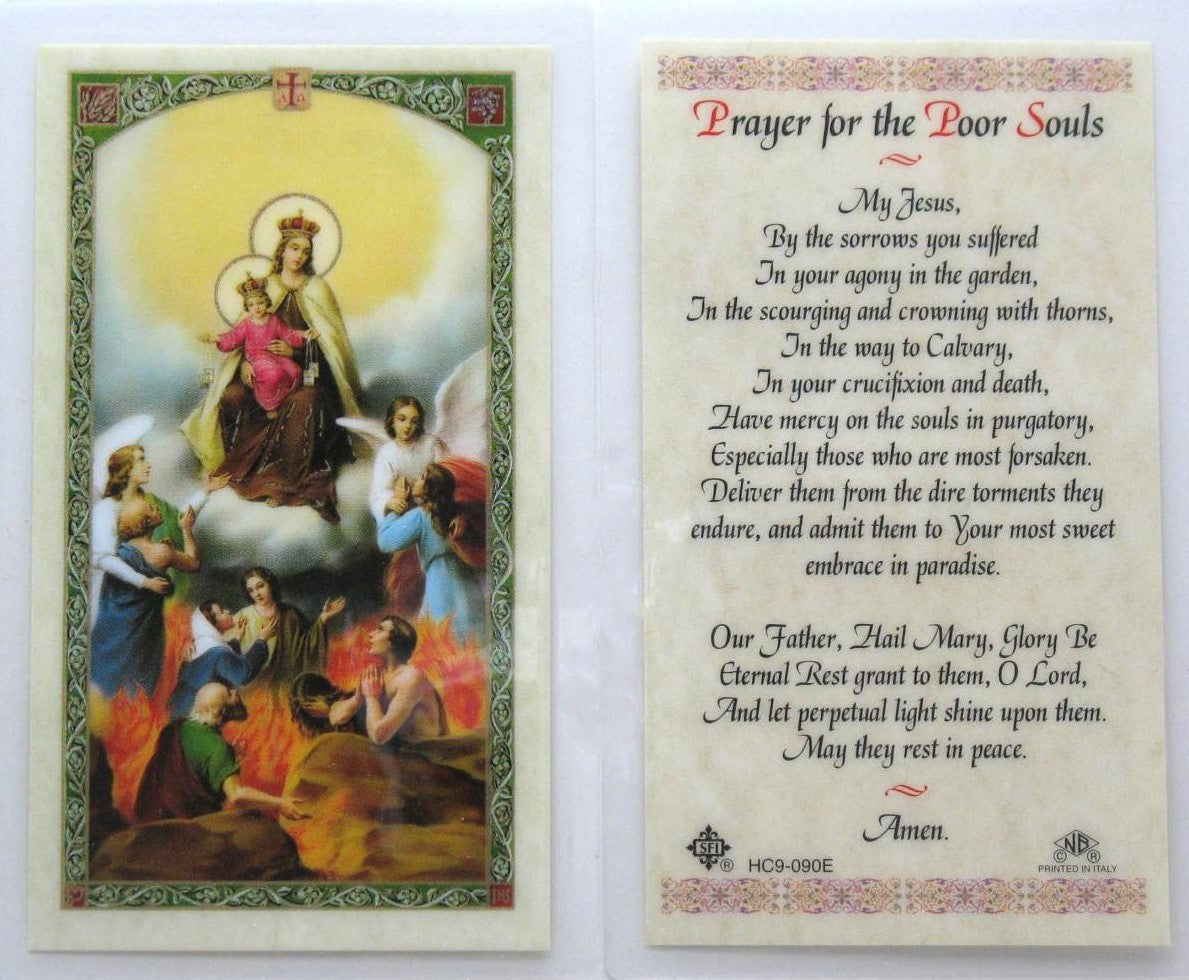 Prayer for the Poor Souls
My Jesus,
By the sorrows you suffered
In your agony in the garden,
In the scourging and crowning with thorns,
In the way to Calvary,
In your crucifixion and death,
Have mercy on the souls in purgatory,
Especially those who are most forsaken.
Deliver them from the dire torments they
endure, and admit them to Your most sweet
embrace in paradise.
Our Father, Hail Mary, Glory Be
Eternal Rest grant to them, O Lord,
And let perpetual light shine upon them.
May they rest in peace.
Amen.
SFI ® HC9-090E
NB © ®
PRINTED IN ITALY
A Ω
IHS